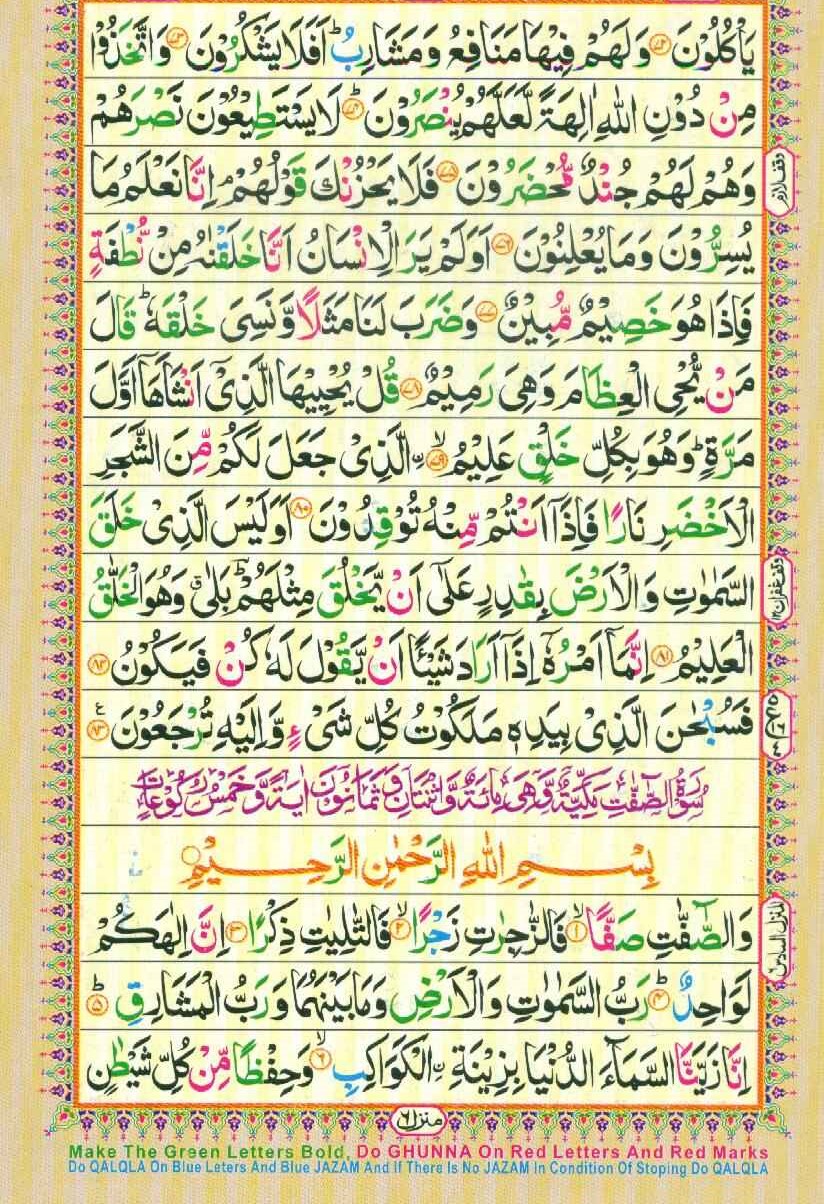 يَاْكُلُوْنَ ﴿۷۲﴾ وَلَهُمْ فِيْهَا مَنَافِعُ وَمَشَارِبُ ؕ اَفَلَا يَشْكُرُوْنَ ﴿۷۳﴾ وَاتَّخَذُوْا
مِنْ دُوْنِ اللّٰهِ اٰلِهَةً لَّعَلَّهُمْ يُنْصَرُوْنَ ؕ﴿۷۴﴾ لَا يَسْتَطِيْعُوْنَ نَصْرَهُمْ
وَهُمْ لَهُمْ جُنْدٌ مُّحْضَرُوْنَ ﴿۷۵﴾ فَلَا يَحْزُنْكَ قَوْلُهُمْ ۘ اِنَّا نَعْلَمُ مَا
وقف لازم
يُسِرُّوْنَ وَمَا يُعْلِنُوْنَ ﴿۷۶﴾ اَوَلَمْ يَرَ الْاِنْسَانُ اَنَّا خَلَقْنٰهُ مِنْ نُّطْفَةٍ
فَاِذَا هُوَ خَصِيْمٌ مُّبِيْنٌ ﴿۷۷﴾ وَضَرَبَ لَنَا مَثَلًا وَّنَسِيَ خَلْقَهٗ ؕ قَالَ
مَنْ يُّحْيِ الْعِظَامَ وَهِيَ رَمِيْمٌ ﴿۷۸﴾ قُلْ يُحْيِيْهَا الَّذِيْٓ اَنْشَاَهَاۤ اَوَّلَ
مَرَّةٍ ؕ وَهُوَ بِكُلِّ خَلْقٍ عَلِيْمُ ۙ﴿۷۹﴾ ۨالَّذِيْ جَعَلَ لَكُمْ مِّنَ الشَّجَرِ
الْاَخْضَرِ نَارًا فَاِذَاۤ اَنْتُمْ مِّنْهُ تُوْقِدُوْنَ ﴿۸۰﴾ اَوَلَيْسَ الَّذِيْ خَلَقَ
السَّمٰوٰتِ وَالْاَرْضَ بِقٰدِرٍ عَلٰٓى اَنْ يَّخْلُقَ مِثْلَهُمْ ؕ بَلٰى ۗ وَهُوَ الْخَلّٰقُ
وقف غفران
الْعَلِيْمُ ﴿۸۱﴾ اِنَّمَاۤ اَمْرُهٗۤ اِذَاۤ اَرَادَ شَيْئًا اَنْ يَّقُوْلَ لَهٗ كُنْ فَيَكُوْنُ ﴿۸۲﴾
فَسُبْحٰنَ الَّذِيْ بِيَدِهٖ مَلَكُوْتُ كُلِّ شَيْءٍ وَّاِلَيْهِ تُرْجَعُوْنَ ﴿۸۳﴾ ع
سُوْرَةُ الصّٰٓفّٰتِ مَكِّيَّةٌ وَّهِيَ مِائَةٌ وَّاثْنَتَانِ وَثَمَانُوْنَ اٰيَةً وَّخَمْسُ رُكُوْعَاتٍ
بِسْمِ اللّٰهِ الرَّحْمٰنِ الرَّحِيْمِ
وَالصّٰٓفّٰتِ صَفًّا ۙ﴿۱﴾ فَالزّٰجِرٰتِ زَجْرًا ۙ﴿۲﴾ فَالتّٰلِيٰتِ ذِكْرًا ﴿۳﴾ اِنَّ اِلٰهَكُمْ
المنزل السادس
لَوَاحِدٌ ؕ﴿۴﴾ رَبُّ السَّمٰوٰتِ وَالْاَرْضِ وَمَا بَيْنَهُمَا وَرَبُّ الْمَشَارِقِ ؕ﴿۵﴾
اِنَّا زَيَّنَّا السَّمَآءَ الدُّنْيَا بِزِيْنَةِ ۨالْكَوَاكِبِ ۙ﴿۶﴾ وَحِفْظًا مِّنْ كُلِّ شَيْطٰنٍ
منزل ٦
Make The Green Letters Bold, Do GHUNNA On Red Letters And Red Marks
Do QALQLA On Blue Leters And Blue JAZAM And If There Is No JAZAM In Condition Of Stoping Do QALQLA